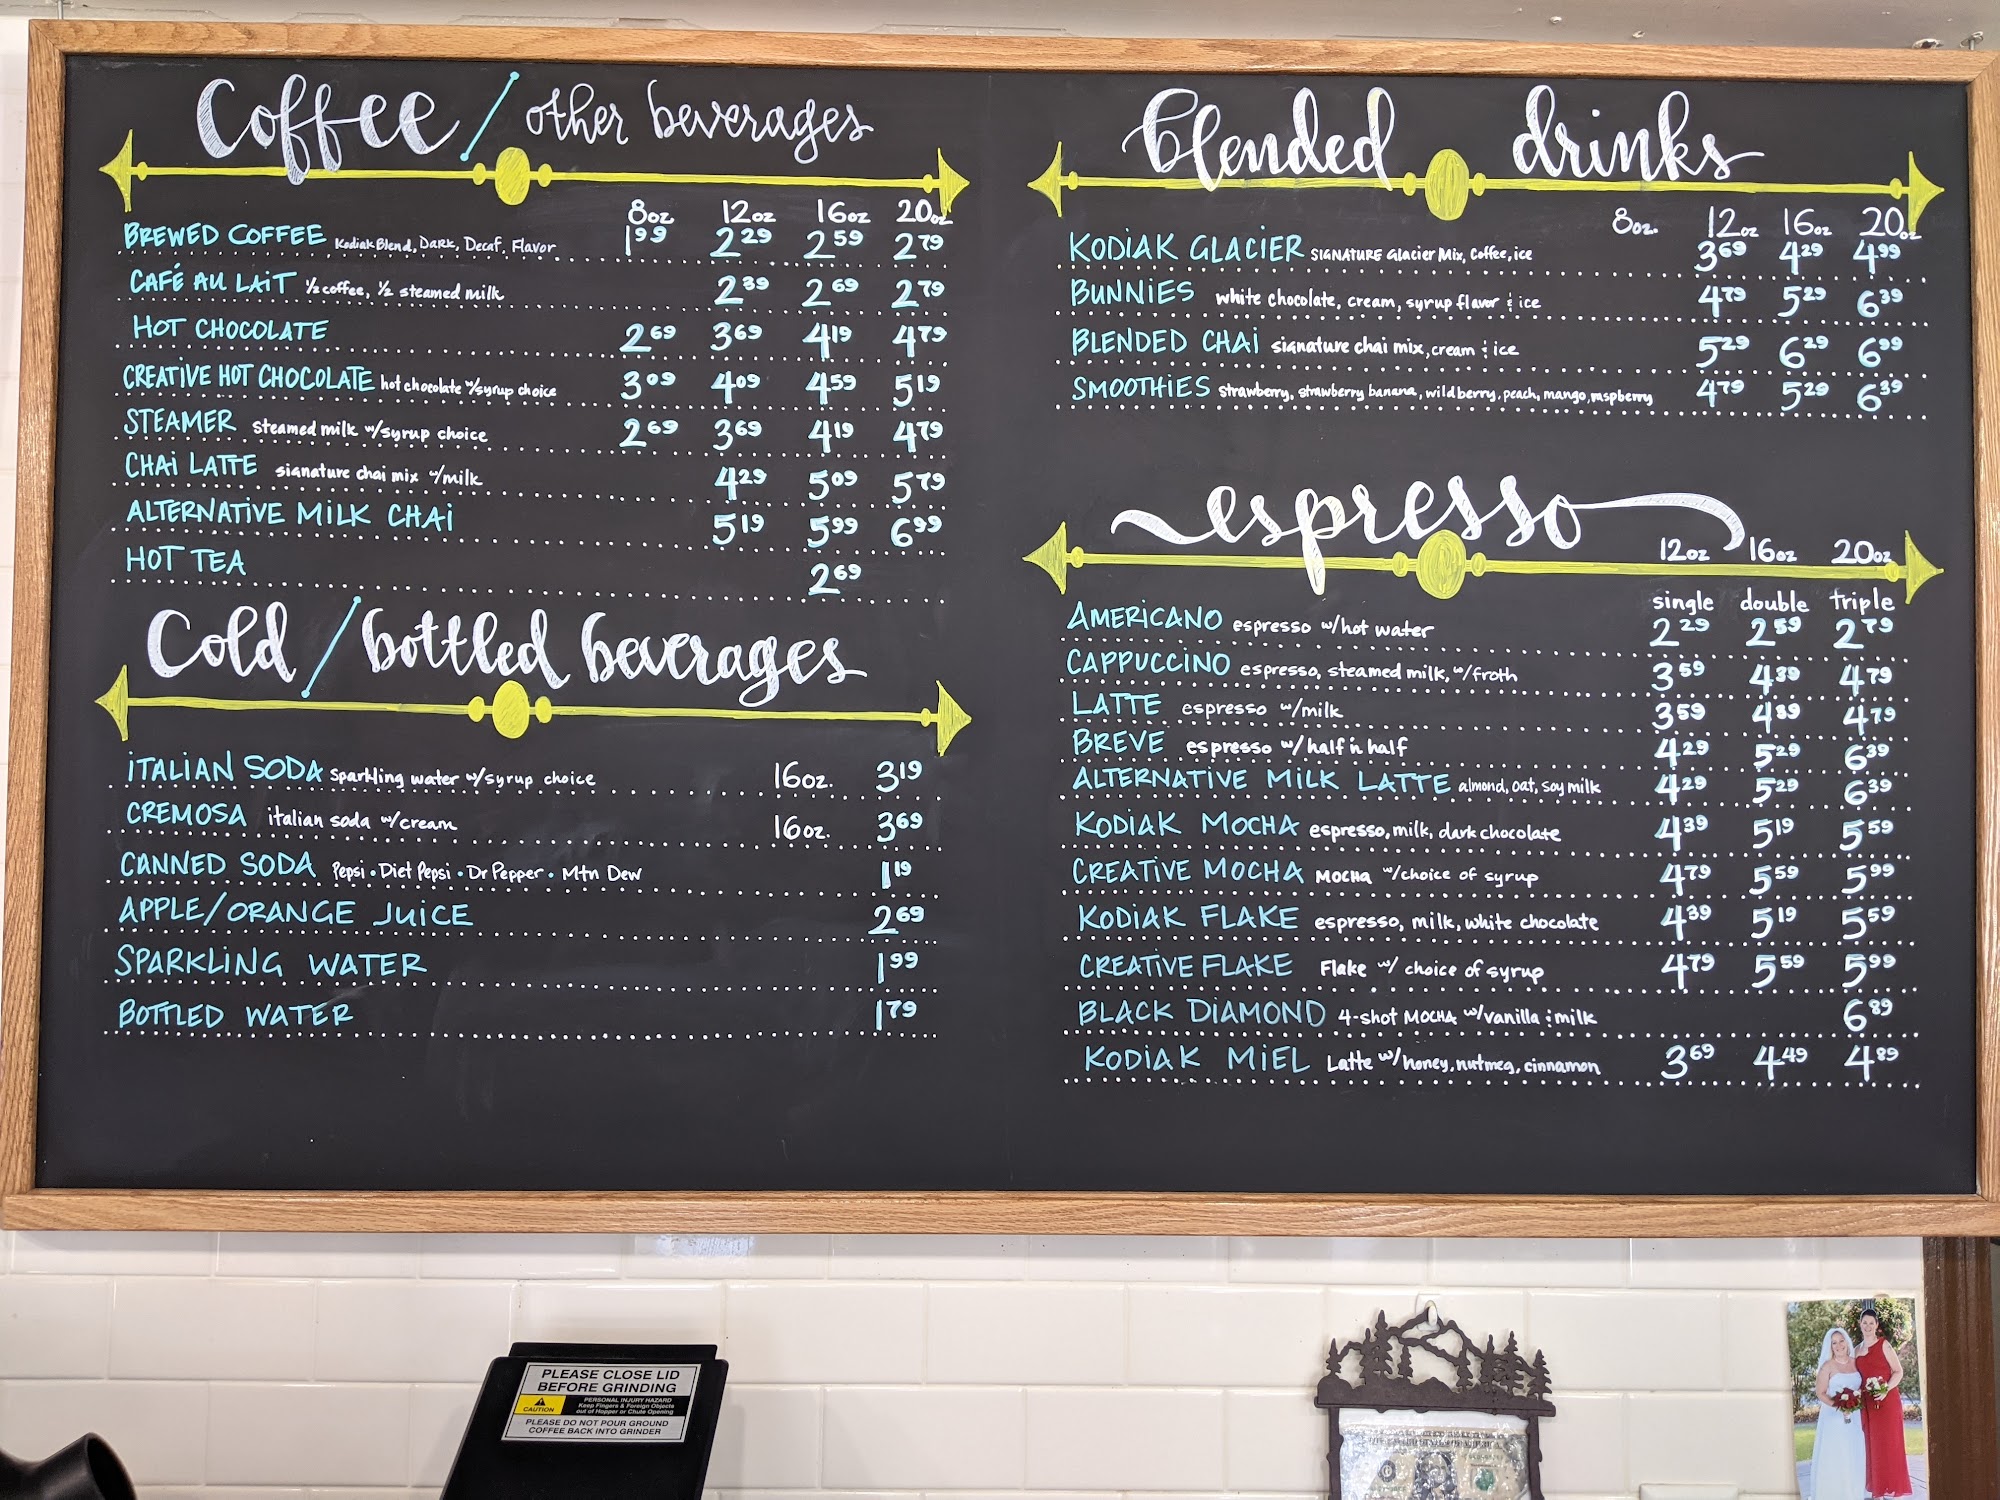 Coffee / other beverages
8oz 12oz 16oz 20oz
BREWED COFFEE Kodiak Blend, Dark, Decaf, Flavor 1.99 2.29 2.59 2.79
CAFÉ AU LAIT ½ coffee, ½ steamed milk 2.39 2.69 2.79
HOT CHOCOLATE 2.69 3.69 4.19 4.79
CREATIVE HOT CHOCOLATE hot chocolate w/syrup choice 3.09 4.09 4.59 5.19
STEAMER steamed milk w/syrup choice 2.69 3.69 4.19 4.79
CHAI LATTE signature chai mix w/milk 4.29 5.09 5.79
ALTERNATIVE MILK CHAI 5.19 5.99 6.99
HOT TEA 2.69
Cold / bottled beverages
ITALIAN SODA Sparkling water w/syrup choice 16oz. 3.19
CREMOSA italian soda w/cream 16oz. 3.69
CANNED SODA Pepsi • Diet Pepsi • Dr Pepper • Mtn Dew 1.19
APPLE/ORANGE JUICE 2.69
SPARKLING WATER 1.99
BOTTLED WATER 1.79
blended drinks
8oz. 12oz 16oz 20oz
KODIAK GLACIER SIGNATURE Glacier Mix, Coffee, ice 3.69 4.29 4.99
BUNNIES white chocolate, cream, syrup flavor & ice 4.79 5.29 6.39
BLENDED CHAI signature chai mix, cream & ice 5.29 6.29 6.99
SMOOTHIES strawberry, strawberry banana, wild berry, peach, mango, raspberry 4.79 5.29 6.39
espresso
12oz 16oz 20oz
single double triple
AMERICANO espresso w/hot water 2.29 2.59 2.79
CAPPUCCINO espresso, steamed milk, w/froth 3.59 4.39 4.79
LATTE espresso w/milk 3.59 4.39 4.79
BREVE espresso w/half n half 4.29 5.29 6.39
ALTERNATIVE MILK LATTE almond, oat, soy milk 4.29 5.29 6.39
KODIAK MOCHA espresso, milk, dark chocolate 4.39 5.19 5.59
CREATIVE MOCHA MOCHA w/choice of syrup 4.79 5.59 5.99
KODIAK FLAKE espresso, milk, white chocolate 4.39 5.19 5.59
CREATIVE FLAKE Flake w/ choice of syrup 4.79 5.59 5.99
BLACK DIAMOND 4-shot MOCHA w/vanilla & milk 6.89
KODIAK MIEL Latte w/honey, nutmeg, cinnamon 3.69 4.49 4.89
PLEASE CLOSE LID
BEFORE GRINDING
CAUTION
PERSONAL INJURY HAZARD
Keep Fingers & Foreign Objects
out of Hopper or Chute Opening
PLEASE DO NOT POUR GROUND
COFFEE BACK INTO GRINDER